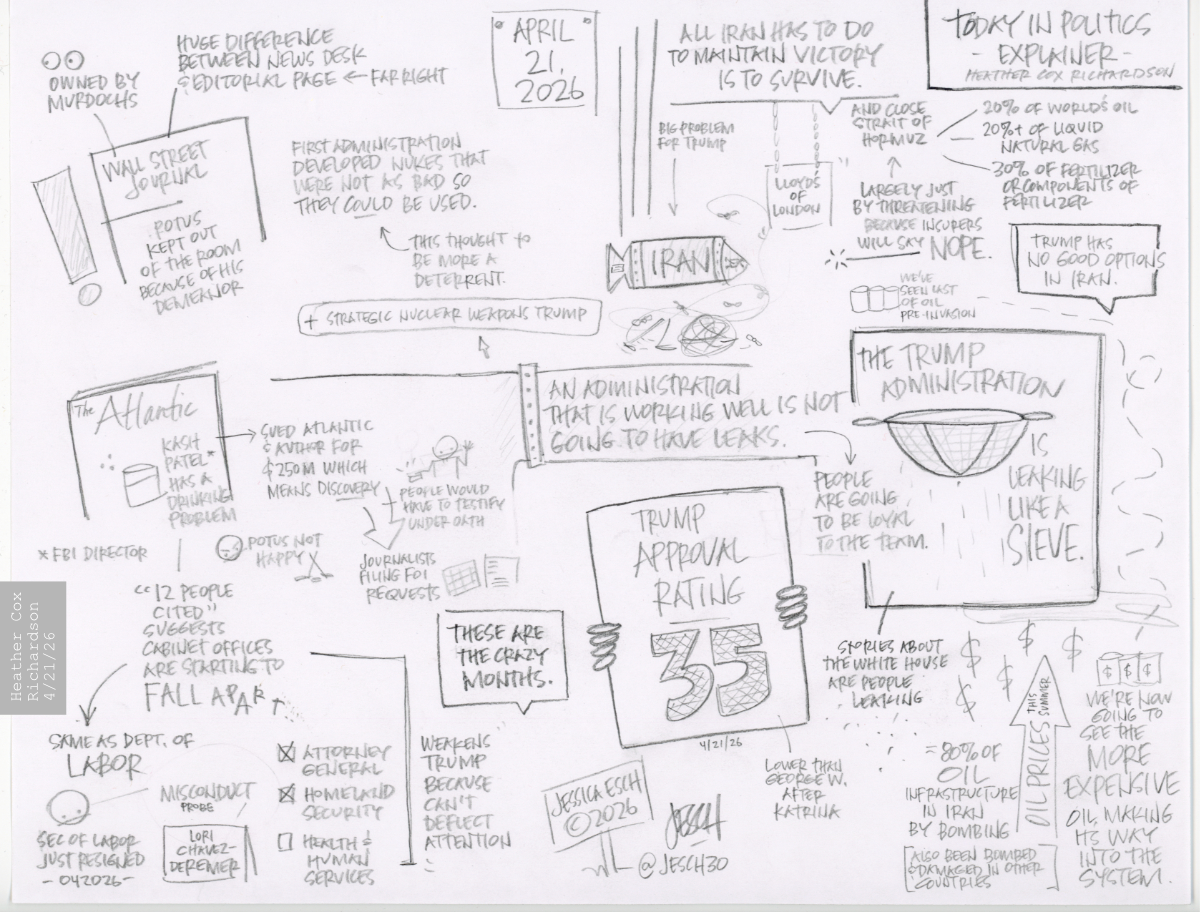 TODAY IN POLITICS
- EXPLAINER -
HEATHER COX RICHARDSON
APRIL
21,
2026
HUGE DIFFERENCE
BETWEEN NEWS DESK
& EDITORIAL PAGE ← FAR RIGHT
OWNED BY
MURDOCHS
WALL STREET
JOURNAL
POTUS
KEPT OUT
OF THE ROOM
BECAUSE OF HIS
DEMEANOR
FIRST ADMINISTRATION
DEVELOPED NUKES THAT
WERE NOT AS BAD SO
THEY COULD BE USED.
THIS THOUGHT TO
BE MORE A
DETERRENT.
+ STRATEGIC NUCLEAR WEAPONS TRUMP
ALL IRAN HAS TO DO
TO MAINTAIN VICTORY
IS TO SURVIVE.
BIG PROBLEM
FOR TRUMP
IRAN
LLOYDS
OF
LONDON
AND CLOSE
STRAIT OF
HORMUZ
20% OF WORLD'S OIL
20%+ OF LIQUID
NATURAL GAS
30% OF FERTILIZER
OR COMPONENTS OF
FERTILIZER
LARGELY JUST
BY THREATENING
BECAUSE INSURERS
WILL SAY NOPE.
WE'VE
SEEN LAST
OF OIL
PRE-INVASION
TRUMP HAS
NO GOOD OPTIONS
IN IRAN.
THE TRUMP
ADMINISTRATION
IS
LEAKING
LIKE A
SIEVE.
AN ADMINISTRATION
THAT IS WORKING WELL IS NOT
GOING TO HAVE LEAKS.
PEOPLE
ARE GOING
TO BE LOYAL
TO THE TEAM.
STORIES ABOUT
THE WHITE HOUSE
ARE PEOPLE
LEAKING
The Atlantic
KASH
PATEL*
HAS A
DRINKING
PROBLEM
* FBI DIRECTOR
SUED ATLANTIC
& AUTHOR FOR
$250M WHICH
MEANS DISCOVERY
PEOPLE WOULD
HAVE TO TESTIFY
UNDER OATH
POTUS NOT
HAPPY
JOURNALISTS
FILING FOI
REQUESTS
"12 PEOPLE
CITED"
SUGGESTS
CABINET OFFICES
ARE STARTING TO
FALL APART
SAME AS DEPT. OF
LABOR
MISCONDUCT
PROBE
LORI
CHAVEZ-
DEREMER
SEC OF LABOR
JUST RESIGNED
- 042026 -
ATTORNEY
GENERAL
HOMELAND
SECURITY
HEALTH &
HUMAN
SERVICES
WEAKENS
TRUMP
BECAUSE
CAN'T
DEFLECT
ATTENTION
THESE ARE
THE CRAZY
MONTHS.
TRUMP
APPROVAL
RATING
35
4/21/26
LOWER THAN
GEORGE W.
AFTER
KATRINA
JESSICA ESCH
©2026
JESCH
@JESCH30
$ $ $ $ $
= 80% OF
OIL
INFRASTRUCTURE
IN IRAN
BY BOMBING
ALSO BEEN BOMBED
& DAMAGED IN OTHER
COUNTRIES
OIL PRICES THIS SUMMER
$ $ $
WE'RE NOW
GOING TO
SEE THE
MORE
EXPENSIVE
OIL MAKING
ITS WAY
INTO THE
SYSTEM.
Heather Cox
Richardson
4/21/26